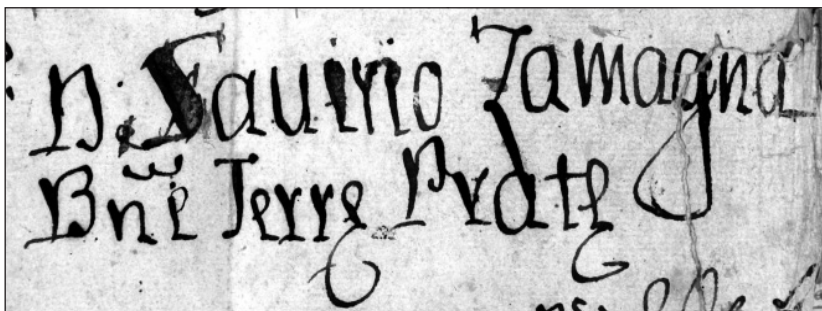 D. Sauirio Zamagna
Bne Terrę Pratę